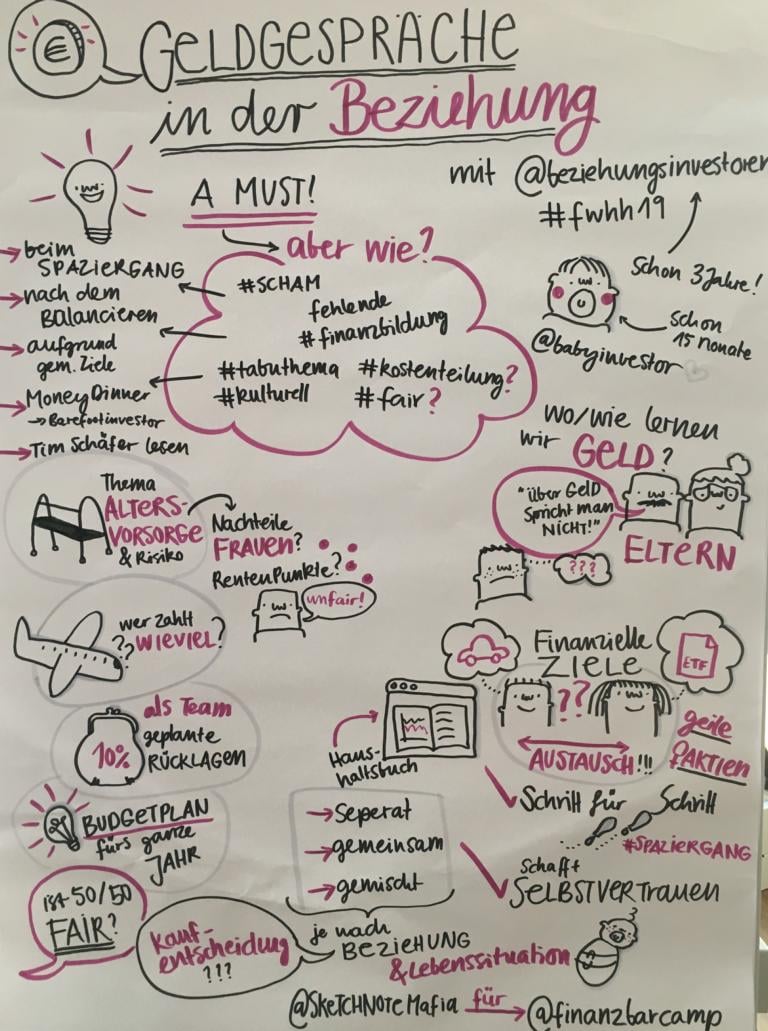 €
GELDGESPRÄCHE
in der Beziehung
mit @beziehungsinvestoren
#fwhh19
Schon 3 Jahre!
schon
15 Monate
@babyinvestor
A MUST!
aber wie?
#SCHAM
fehlende
#finanzbildung
#tabuthema #kostenteilung?
#kulturell #fair?
→ beim
SPAZIERGANG
→ nach dem
Balancieren
→ aufgrund
gem. Ziele
→ Money Dinner
→ Barefootinvestor
→ Tim Schäfer lesen
wo/wie lernen
wir GELD?
"Über GELD
spricht man
NICHT!"
ELTERN
???
Thema
ALTERS-
VORSORGE
& Risiko
Nachteile
FRAUEN?
RentenPunkte?
unfair!
wer zahlt
?? WIEVIEL?
als Team
10% geplante
RÜCKLAGEN
BUDGETPLAN
fürs ganze
JAHR
ist 50/50
FAIR?
Kauf-
entscheidung
???
Finanzielle
ZIELE
ETF
??
AUSTAUSCH!!!
geile
AKTIEN
Haus-
haltsbuch
→ Seperat
→ gemeinsam
→ gemischt
je nach
BEZIEHUNG
& Lebenssituation
Schritt für Schritt
#SPAZIERGANG
Schafft
SELBSTVERTrauen
@SKETCHNOTEMafia für → @finanzbarcamp